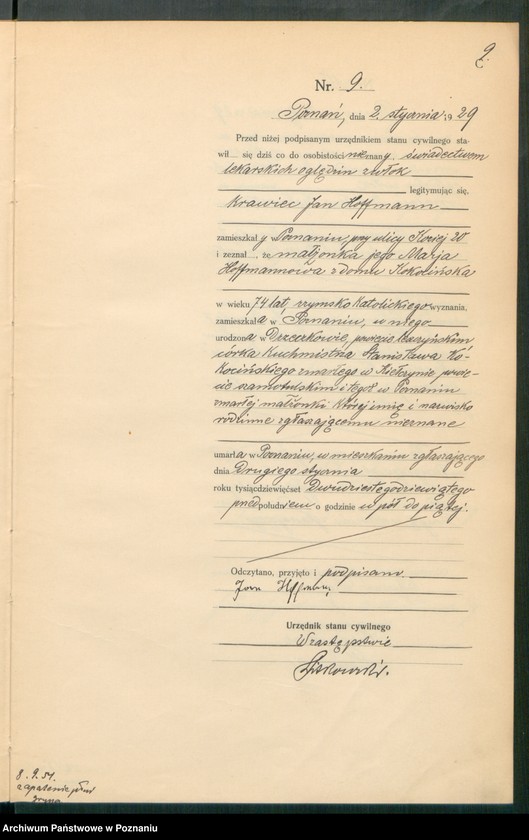 9
Nr. 9.
Poznań, dnia 2. stycznia 1929
Przed niżej podpisanym urzędnikiem stanu cywilnego sta-
wił się dziś co do osobistości nieznany, świadectwem
lekarskich oględzin zwłok
legitymując się,
krawiec Jan Hoffmann
zamieszkały w Poznaniu, przy ulicy Koziej 20
i zeznał, że małżonka jego Marja
Hoffmannowa z domu
w wieku 74 lat, rzymsko katolickiego wyznania,
zamieszkała w Poznaniu, u niego
urodzona w
córka kuchmistrza Stanisława
zmarłego w powie-
cie szamotulskim i tegoż w Poznaniu
zmarłej małżonki której imię i nazwisko
rodzinne zgłaszającemu nieznane
umarła w Poznaniu, w mieszkaniu zgłaszającego
dnia Drugiego stycznia
roku tysiącdziewięćset Dwudziestego dziewiątego
przed południem o godzinie w pół do piątej.
Odczytano, przyjęto i podpisano
Jan Hoffmann
Urzędnik stanu cywilnego
W zastępstwie
8. 9. 51.
Archiwum Państwowe w Poznaniu